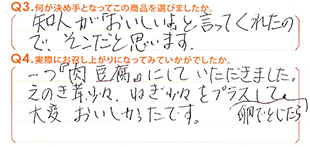 Q3.何が決め手となってこの商品を選びましたか。
知人が「おいしいよ」と言ってくれたの
で、そこだと思います.
Q4.実際にお召し上がりになってみていかがでしたか。
一つ『肉豆腐』にしていただきました。
えのき茸少々、ねぎ少々をプラスして
卵でとじたら
大変おいしかったです。